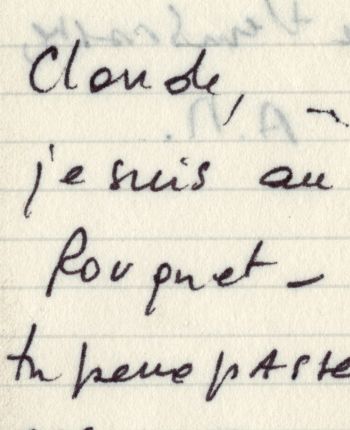 Claude,
je suis au
Rouquet -
tu peux passe